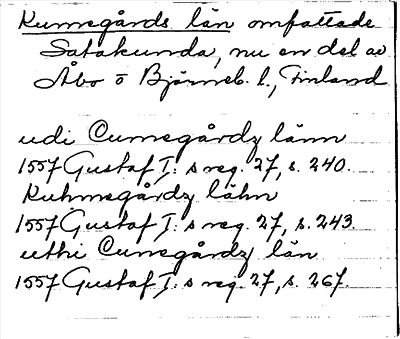 Kumegårds län omfattade
Satakunda, nu en del av
Åbo o Björneb. l., Finland
udi Cumegårdz länn
1557 Gustaf I:s reg. 27, s. 240.
Kuhmegårdz lähn
1557 Gustaf I:s reg. 27, s. 243.
uthi Cumegårdz län
1557 Gustaf I:s reg. 27, s. 267.